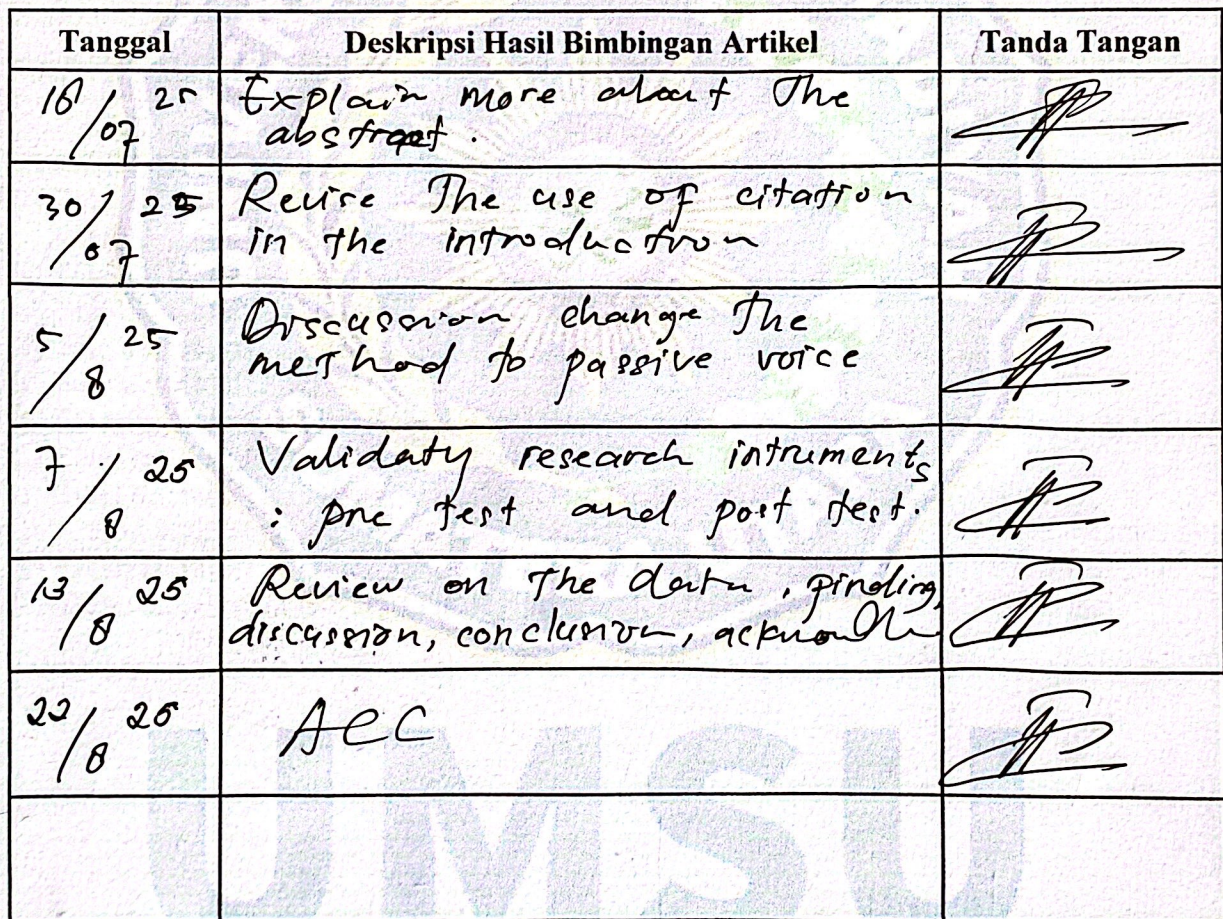 Tanggal Deskripsi Hasil Bimbingan Artikel Tanda Tangan
16/07 25 Explain more about the
abstract.
30/07 25 Revise the use of citation
in the introduction
5/8 25 Discussion change the
method to passive voice
7/8 25 Validaty research intruments
: pre test and post test.
13/8 25 Review on the data, pinding,
discussion, conclusion,
22/8 25 ACC
UMSU